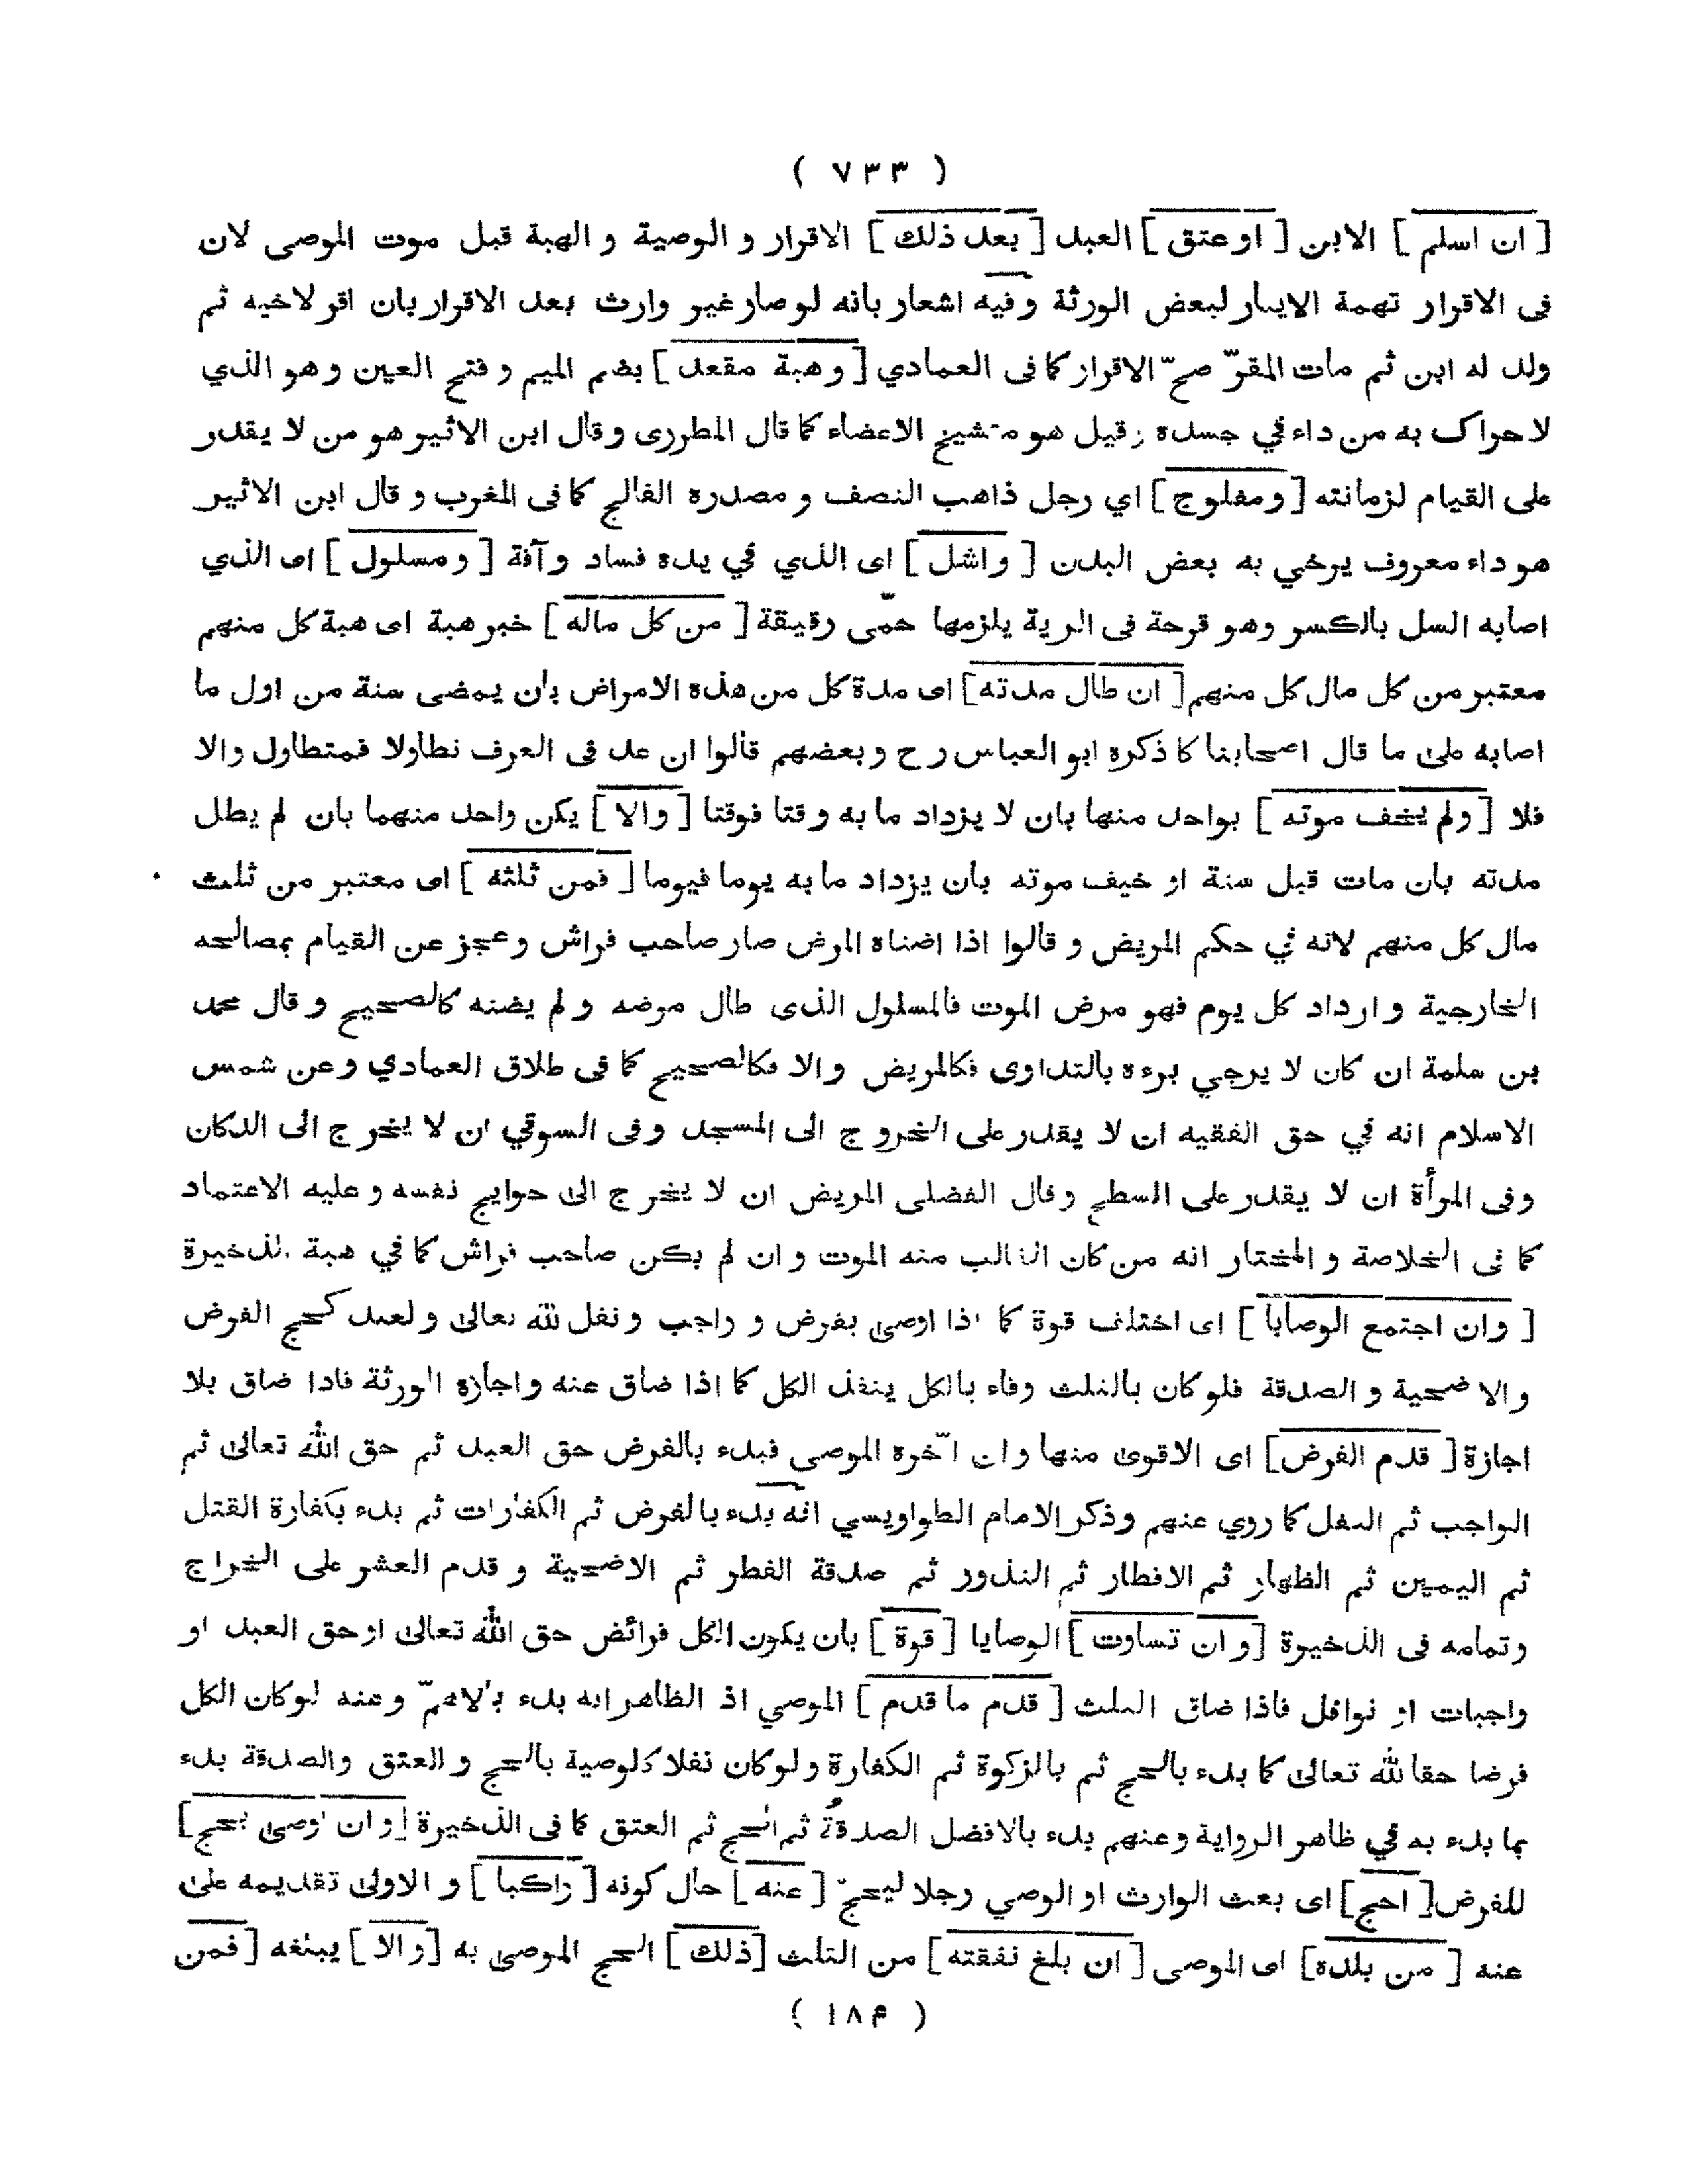 ( ٧٣٣ )
[ ان اسلم ] الابن [ او عتق ] العبد [ بعد ذلك ] الاقرار و الوصية و الهبة قبل موت الموصى لان
فى الاقرار تهمة الايثار لبعض الورثة وفيه اشعار بانه لو صار غير وارث بعد الاقرار بان اقر لاخيه ثم
ولد له ابن ثم مات المقرّ صحّ الاقرار كما فى العمادي [ و هبة مقعد ] بضم الميم و فتح العين وهو الذي
لا حراك به من داء في جسده وقيل هو متشنج الاعضاء كما قال المطرزى وقال ابن الاثير هو من لا يقدر
على القيام لزمانته [ ومفلوج ] اي رجل ذاهب النصف و مصدره الفالج كما فى المغرب و قال ابن الاثير
هو داء معروف يرخي به بعض البدن [ واشل ] اى الذي في يده فساد وآفة [ ومسلول ] اى الذي
اصابه السل بالكسر وهو قرحة فى الرية يلزمها حمّى رقيقة [ من كل ماله ] خبر هبة اى هبة كل منهم
معتبر من كل مال كل منهم [ ان طال مدته ] اى مدة كل من هذه الامراض بان يمضى سنة من اول ما
اصابه على ما قال اصحابنا كا ذكره ابو العباس رح وبعضهم قالوا ان عد فى العرف نطاولا فمتطاول والا
فلا [ ولم يخف موته ] بواحد منها بان لا يزداد ما به وقتا فوقتا [ والا ] يكن واحد منهما بان لم يطل
مدته بان مات قبل سنة او خيف موته بان يزداد ما به يوما فيوما [ فمن ثلثه ] اى معتبر من ثلث
مال كل منهم لانه في حكم المريض و قالوا اذا اضناه المرض صار صاحب فراش وعجز عن القيام بمصالحه
الخارجية و ارداد كل يوم فهو مرض الموت فالمسلول الذى طال مرضه ولم يضنه كالصحيح و قال محمد
بن سلمة ان كان لا يرجي برءه بالتداوى فكالمريض والا فكالصحيح كما فى طلاق العمادي وعن شمس
الاسلام انه في حق الفقيه ان لا يقدر على الخروج الى المسجد وفى السوقي ان لا يخرج الى الدكان
وفى المرأة ان لا يقدر على السطح وقال الفضلى المريض ان لا يخرج الى حوايج نفسه وعليه الاعتماد
كما فى الخلاصة و المختار انه من كان الغالب منه الموت و ان لم يكن صاحب فراش كما في هبة الذخيرة
[ وان اجتمع الوصايا ] اى اختلف قوة كما اذا اوصى بفرض و واجب و نفل لله تعالى ولعبد كحج الفرض
والاضحية و الصدقة فلو كان بالثلث وفاء بالكل ينفذ الكل كما اذا ضاق عنه و اجازه الورثة فاذا ضاق بلا
اجازة [ قدم الفرض ] اى الاقوى منها وان اخّره الموصى فبدء بالفرض حق العبد ثم حق الله تعالى ثم
الواجب ثم النفل كما روي عنهم وذكر الامام الطواويسي انه بدء بالفرض ثم الكفارات ثم بدء بكفارة القتل
ثم اليمين ثم الظهار ثم الافطار ثم النذور ثم صدقة الفطر ثم الاضحية و قدم العشر على الخراج
وتمامه فى الذخيرة [ و ان تساوت ] الوصايا [ قوة ] بان يكون الكل فرائض حق الله تعالى او حق العبد او
واجبات او نوافل فاذا ضاق الثلث [ قدم ما قدم ] الموصي اذ الظاهر انه بدء بالاهمّ وعنه لو كان الكل
فرضا حقا لله تعالى كما بدء بالحج ثم بالزكوة ثم الكفارة ولو كان نفلا كلوصية بالحج و العتق والصدقة بدء
بما بدء به في ظاهر الرواية وعنهم بدء بالافضل الصدقة ثم الحج ثم العتق كما فى الذخيرة [ و ان اوصى بحج ]
للفرض [ احج ] اى بعث الوارث او الوصي رجلا ليحجّ [ عنه ] حال كونه [ راكبا ] و الاولى تقديمه على
عنه [ من بلده ] اى الموصى [ ان بلغ نفقته ] من الثلث [ ذلك ] الحج الموصى به [ والا ] يبلغه [ فمن
( ١٨۴ )